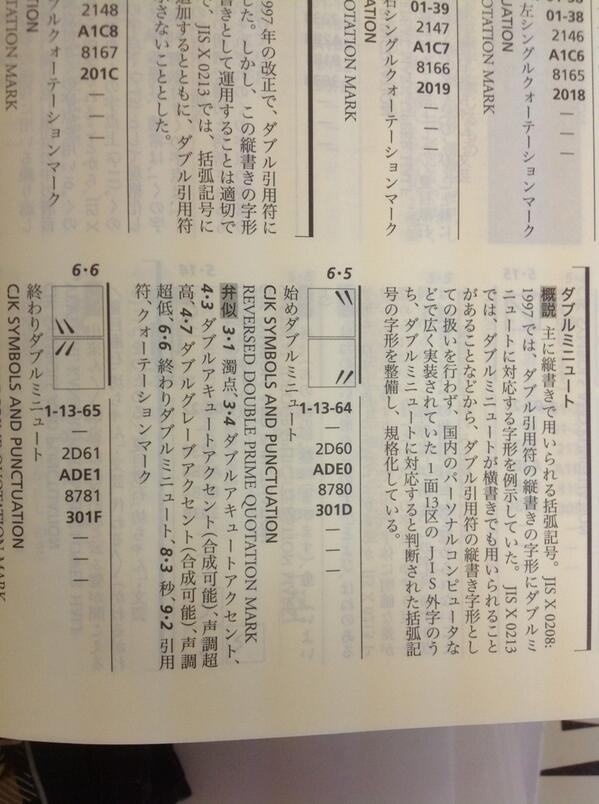 01-38
2146
A1C6
8165
2018
—
—
左シングルクォーテーションマーク
UATION
OTATION MARK
01-39
2147
A1C7
8166
2019
—
—
—
右シングルクォーテーションマーク
UATION
OTATION MARK
997 年の改正で、ダブル引用符に
した。しかし、この縦書きの字形
書きとして運用することは適切で
で、JIS X 0213 では、括弧記号に
追加するとともに、ダブル引用符
示さないこととした。
2148
A1C8
8167
201C
—
—
—
ブルクォーテーションマーク
TION
OTATION MARK
ダブルミニュート
概説 主に縦書きで用いられる括弧記号。JIS X 0208:
1997 では、ダブル引用符の縦書きの字形にダブルミ
ニュートに対応する字形を例示していた。JIS X 0213
では、ダブルミニュートが横書きでも用いられること
があることなどから、ダブル引用符の縦書き字形とし
ての扱いを行わず、国内のパーソナルコンピュータな
どで広く実装されていた 1面13区の JIS 外字のう
ち、ダブルミニュートに対応すると判断された括弧記
号の字形を整備し、規格化している。
6・5
〝
〃
1-13-64
—
2D60
ADE0
8780
301D
—
—
—
始めダブルミニュート
CJK SYMBOLS AND PUNCTUATION
REVERSED DOUBLE PRIME QUOTATION MARK
弁似 3・1 濁点、3・4 ダブルアキュートアクセント、
4・3 ダブルアキュートアクセント(合成可能)、声調超
高、4・7 ダブルグレーブアクセント(合成可能)、声調
超低、6・6 終わりダブルミニュート、8・3 秒、9・2 引用
符、クォーテーションマーク
6・6
1-13-65
—
2D61
ADE1
8781
301F
—
—
—
終わりダブルミニュート
CJK SYMBOLS AND PUNCTUATION